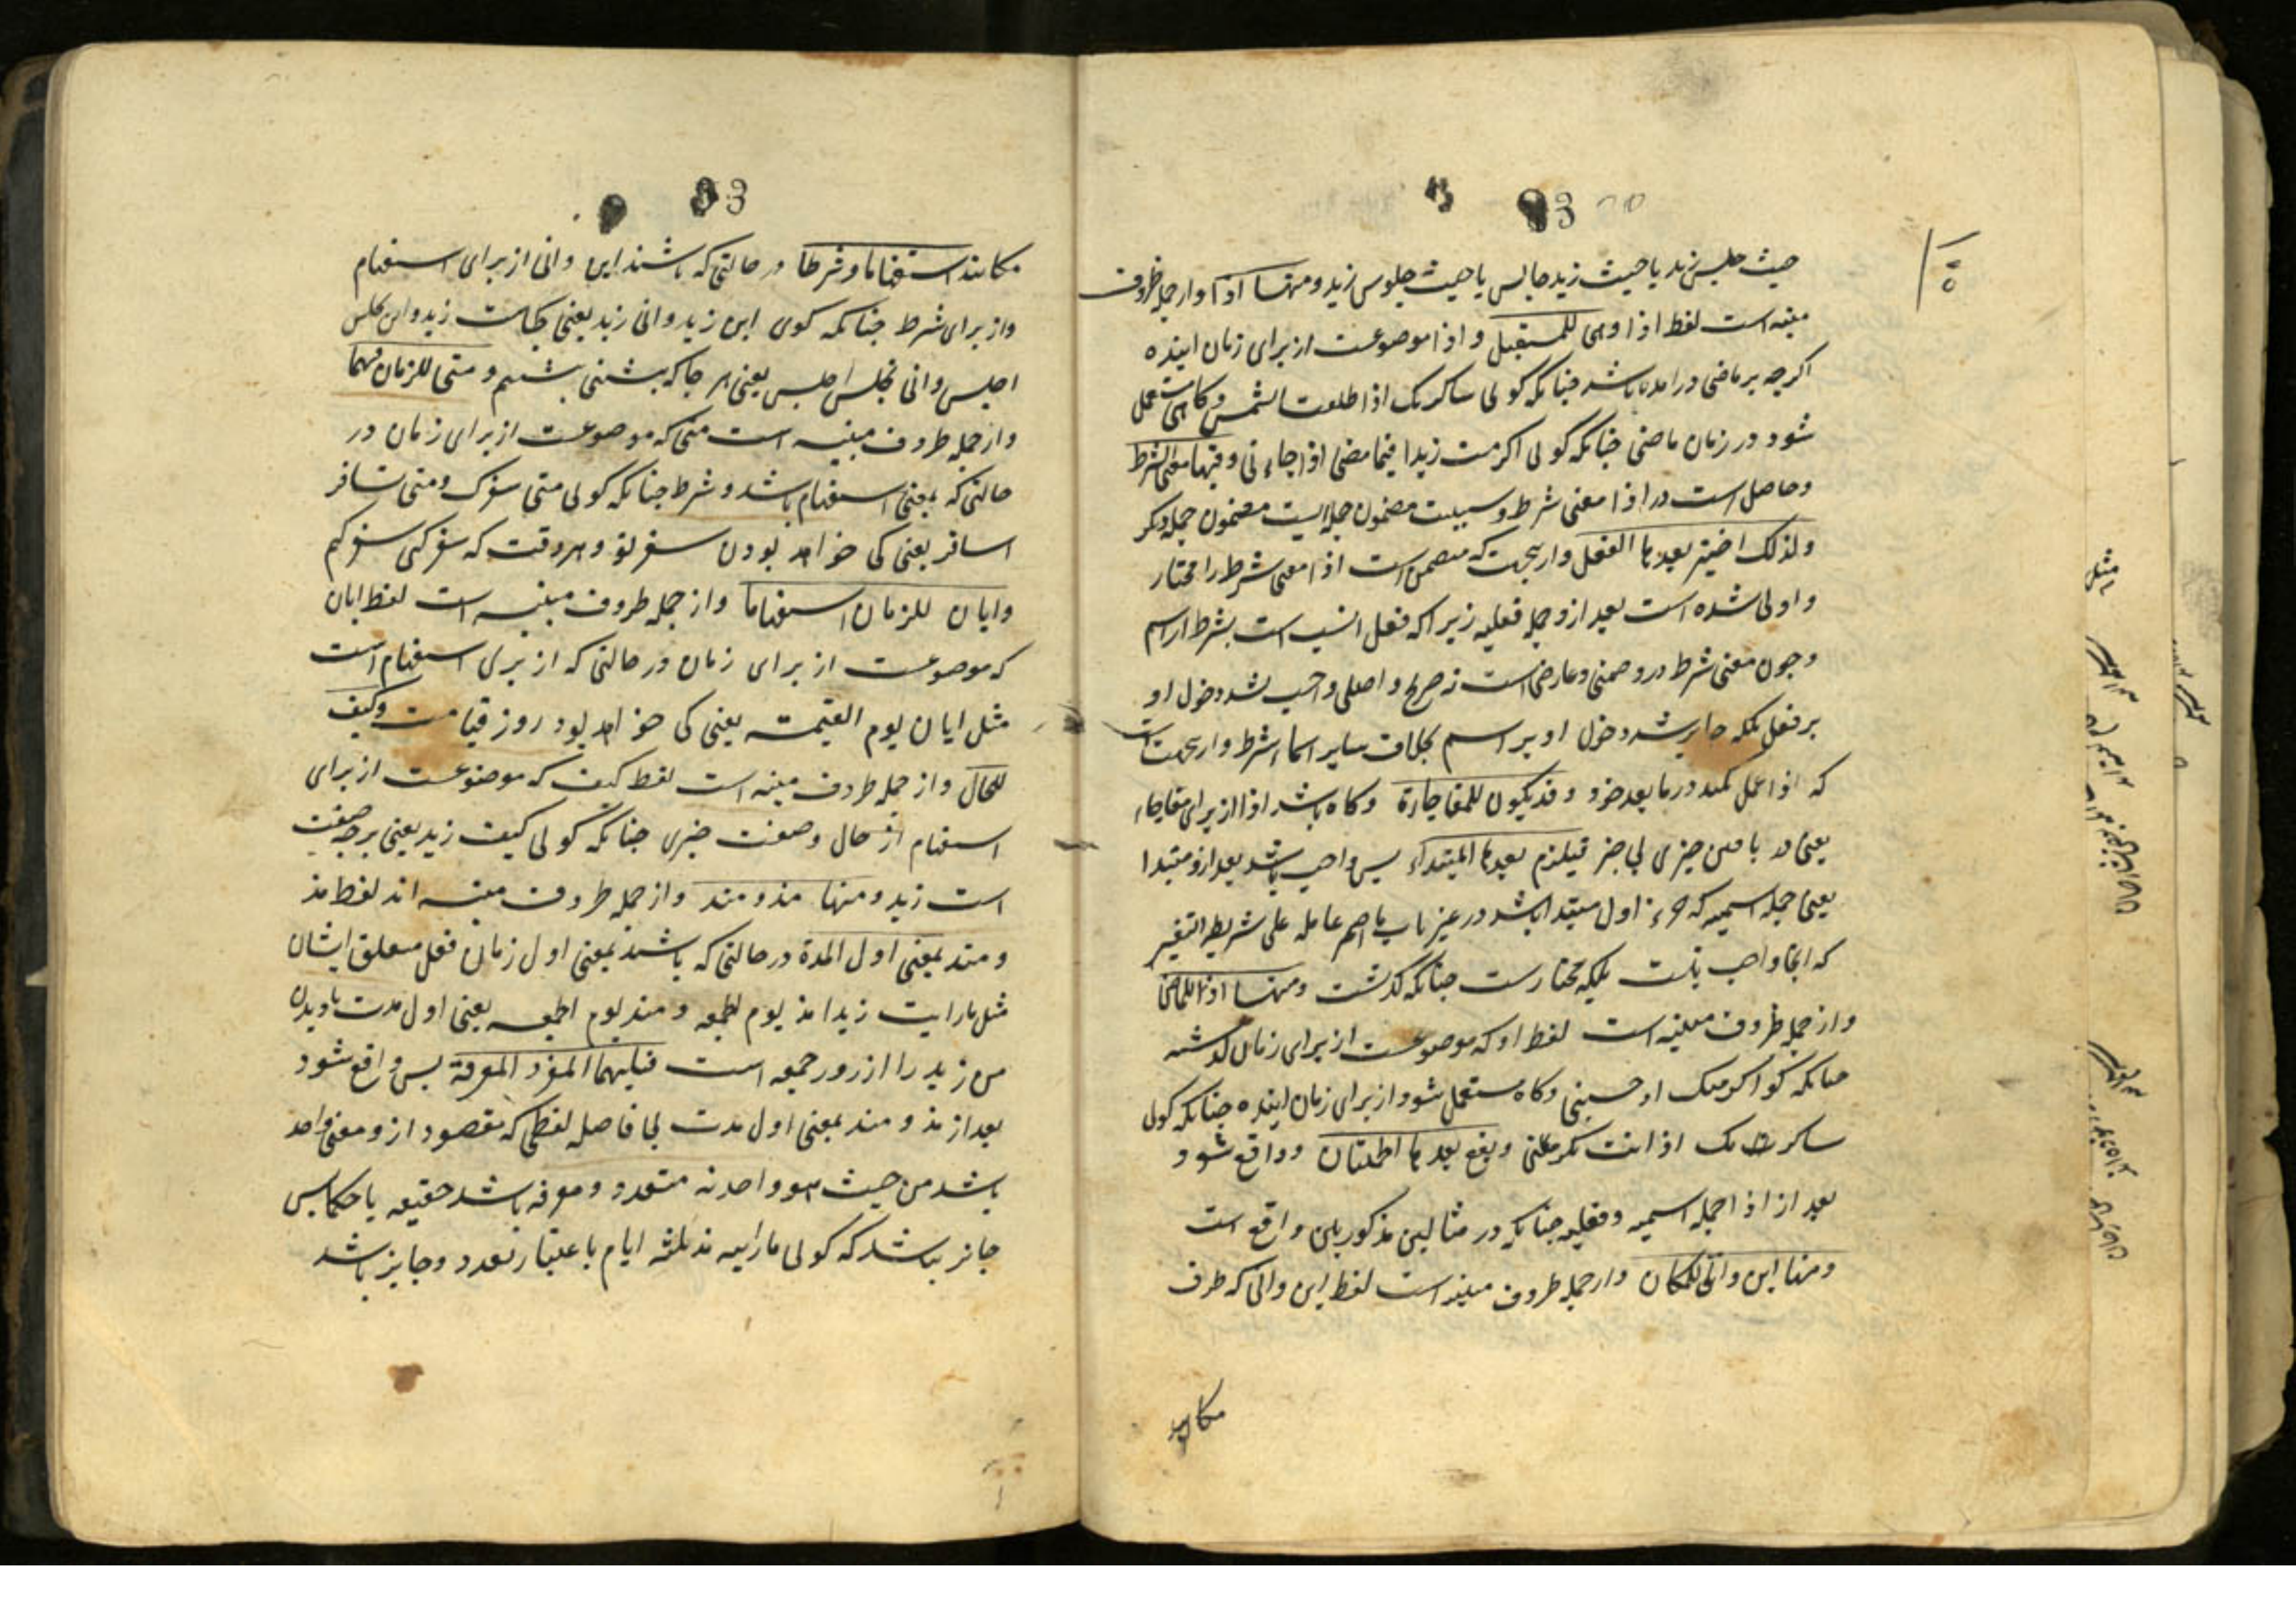 حیث جلس زید یا حیث زید جالس یا حیث جلوس زید ومنها اذا وازجمله ظروف
مبنیه است لفظ اذا وهی للمستقبل و اذا موضوعست از برای زمان اینده
اکرچه بر ماضی درامده باشد چنانکه کوئی ساکرمک اذا طلعت الشمس وکاهی مستعمل
شود در زمان ماضی چنانکه کوئی اکرمت زیدا فیما مضی اذا جاءنی وفیها معنی الشرط
وحاصل است در اذا معنی شرط وسببیت مضمون جمله ایست مضمون جمله دیکر
ولذلک اختیر بعدها الفعل وازیجهت که متضمن است اذا معنی شرط را مختار
و اولی شده است بعد ازو جمله فعلیه زیرا که فعل انسب است بشرط از اسم
وچون معنی شرط درو ضمنی وعارضی است نه صریح و اصلی واجب نشد دخول او
بر فعل بلکه جایز شد دخول او بر اسم بخلاف سایر اسماء شرط وازیجهت است
که اذا عمل نمیکند در ما بعد خود وقد یکون للمفاجاة وکاه باشد اذا از برای مفاجاء
یعنی در یافتن چیزی بی خبر فیلزم بعدها المبتداء پس واجب باشد بعد ازو مبتدا
یعنی جمله اسمیه که جزء اول مبتدا باشد در غیر باب ما اضمر عامله علی شریطة التفسیر
که انجا واجب نیست بلکه مختارست چنانکه کذشت ومنها اذ للماضی
و از جمله ظروف مبنیه است لفظ اذ که موضوعست از برای زمان کذشته
چنانکه کوئی اکرمتک اذ جئتنی وکاه مستعمل شود از برای زمان اینده چنانکه کوئی
ساکرمک اذ انت تکرمنی ویقع بعدها الجملتان وواقع شود
بعد از اذ جمله اسمیه وفعلیه چنانکه در مثالین مذکورین واقع است
ومنها این وانی للمکان وازجمله ظروف مبنیه است لفظ این وانی که ظرف
مکانند
مکانند استفهاما وشرطا در حالتی که باشند این وانی از برای استفهام
واز برای شرط چنانکه کوی این زید وانی زید یعنی کجاست زید واین تجلس
اجلس وانی تجلس اجلس یعنی هر جا که بنشینی بنشینم ومتی للزمان فیهما
واز جمله ظروف مبنیه است متی که موضوعست از برای زمان در
حالتی که بمعنی استفهام باشد وشرط چنانکه کوئی متی سفرک ومتی تسافر
اسافر یعنی کی خواهد بودن سفر تو وهر وقت که سفر کنی سفر کنم
وایان للزمان استفهاما واز جمله ظروف مبنیه است لفظ ایان
که موضوعست از برای زمان در حالتی که از برای استفهام است
مثل ایان یوم القیمة یعنی کی خواهد بود روز قیامت وکیف
للحال واز جمله ظروف مبنیه است لفظ کیف که موضوعست از برای
استفهام از حال وصفت چیزی چنانکه کوئی کیف زید یعنی بر چه صفت
است زید ومنها مذ ومنذ واز جمله ظروف مبنیه اند لفظ مذ
ومنذ بمعنی اول المدة در حالتی که باشند بمعنی اول زمان فعل متعلق ایشان
مثل ما رایت زیدا مذ یوم الجمعه ومنذ یوم الجمعه یعنی اول مدت نادیدن
من زید را از روز جمعه است فیلیهما المفرد المعرفة پس واقع شود
بعد از مذ ومنذ بمعنی اول مدت بی فاصله لفظی که مقصود ازو معنی واحد
باشد من حیث هو واحد نه متعدد ومعرفه باشد حقیقه یا حکما پس
جایز نباشد که کوئی ما رایته مذ ثلثه ایام باعتبار تعدد وجایز باشد